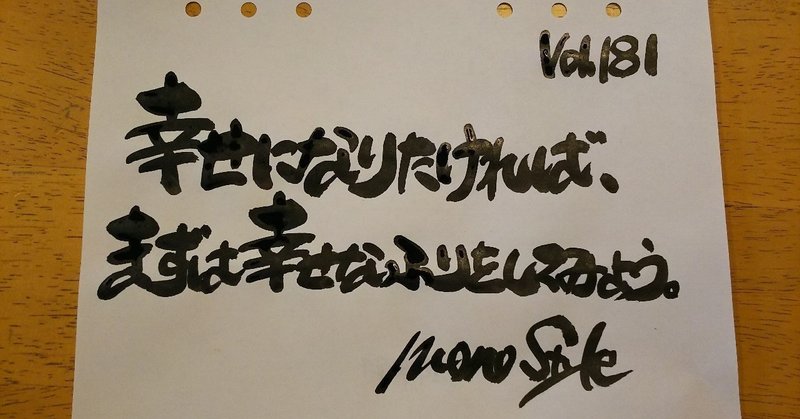 Vol.181
幸せになりたければ、
まずは幸せなふりをしてみよう。
mono Style